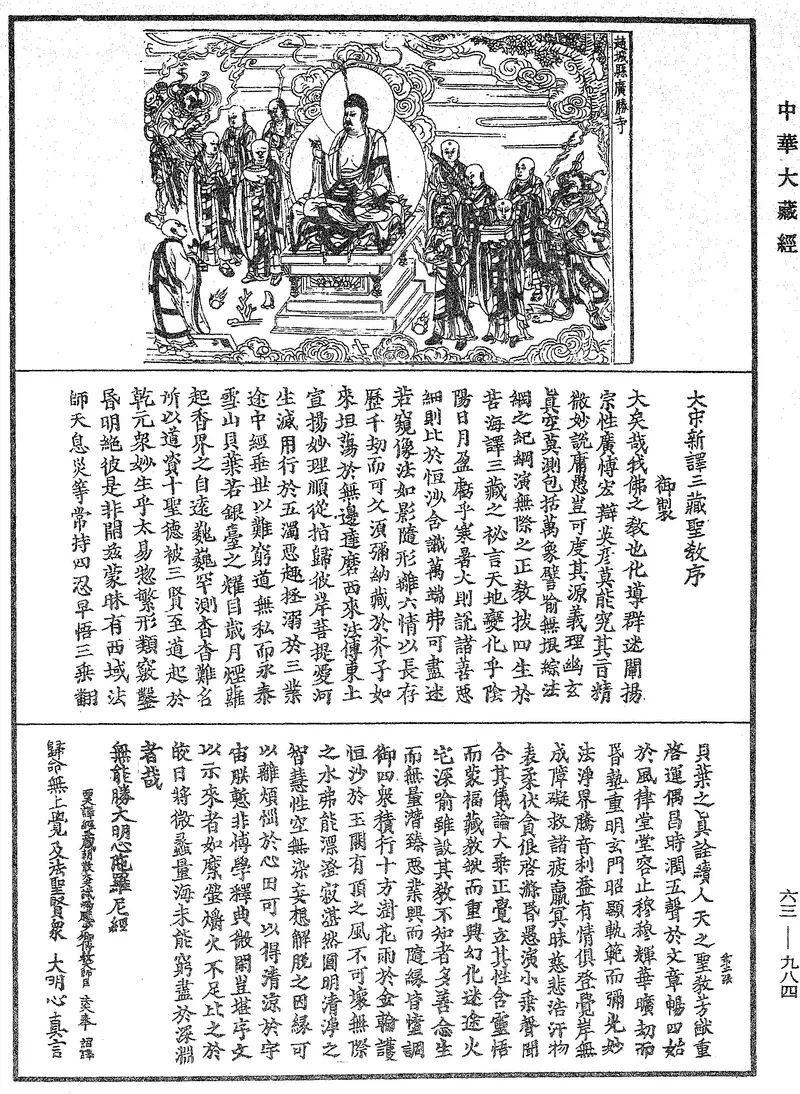 中華大藏經
六三—九八四
趙城縣廣勝寺
大宋新譯三藏聖教序
御製
大矣哉我佛之教也化導群迷闡揚
宗性廣博宏辯英彥莫能究其旨精
微妙說庸愚豈可度其源義理幽玄
真空莫測包括萬象譬喻無垠綜法
網之紀綱演無際之正教拔四生於
苦海譯三藏之秘言天地變化乎陰
陽日月盈虧乎寒暑大則說諸善惡
細則比於恒沙含識萬端弗可盡述
若窺像法如影隨形離六情以長存
歷千劫而可久須彌納藏於芥子如
來坦蕩於無邊達磨西來法傳東土
宣揚妙理順從指歸彼岸菩提愛河
生滅用行於五濁惡趣拯溺於三業
途中經垂世以難窮道無私而永泰
雪山貝葉若銀臺之耀目歲月煙蘿
起香界之自遠巍巍罕測杳杳難名
所以道資十聖德被三賢至道起於
乾元眾妙生乎太易惣繁形類竅鑿
昏明絕彼是非開茲蒙昧有西域法
師天息災等常持四忍早悟三乘翻
貝葉之真詮續人天之聖教芳猷重
啓運偶昌時潤五聲於文章暢四始
於風律堂堂容止穆穆輝華曠劫而
昏墊重明玄門昭顯軌範而彌光妙
法淨界騰音利益有情俱登覺岸無
成障礙救諸疲羸冥昧慈悲浩汗物
表柔伏貪很啓滌昏愚演小乘聲聞
合其儀論大乘正覺立其性含靈悟
而蒙福藏教缺而重興幻化迷途火
宅深喻雖設其教不知者多善念生
而無量潛臻惡業興而隨緣皆墮調
御四眾積行十方澍花雨於金輪護
恒沙於玉闕有頂之風不可壞無際
之水弗能漂澄寂湛然圓明清淨之
智慧性空無染妄想解脫之因緣可
以離煩惱於心田可以得清涼於宇
宙朕慙非博學釋典微閑豈堪序文
以示來者如縻螢爝火不足比之於
皎日將微蠡量海未能窮盡於深淵
者哉
無能勝大明心陁羅尼經
歸命無上覺及法聖賢眾 大明心真言